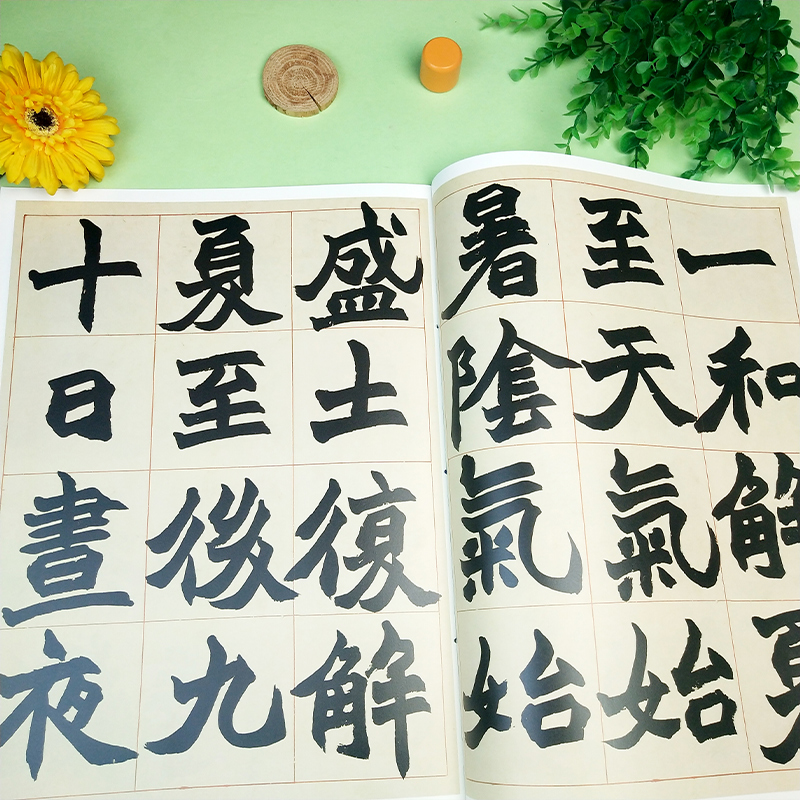 一和解夏
至天氣始
暑陰氣始
盛土復解
夏至後九
十日晝夜